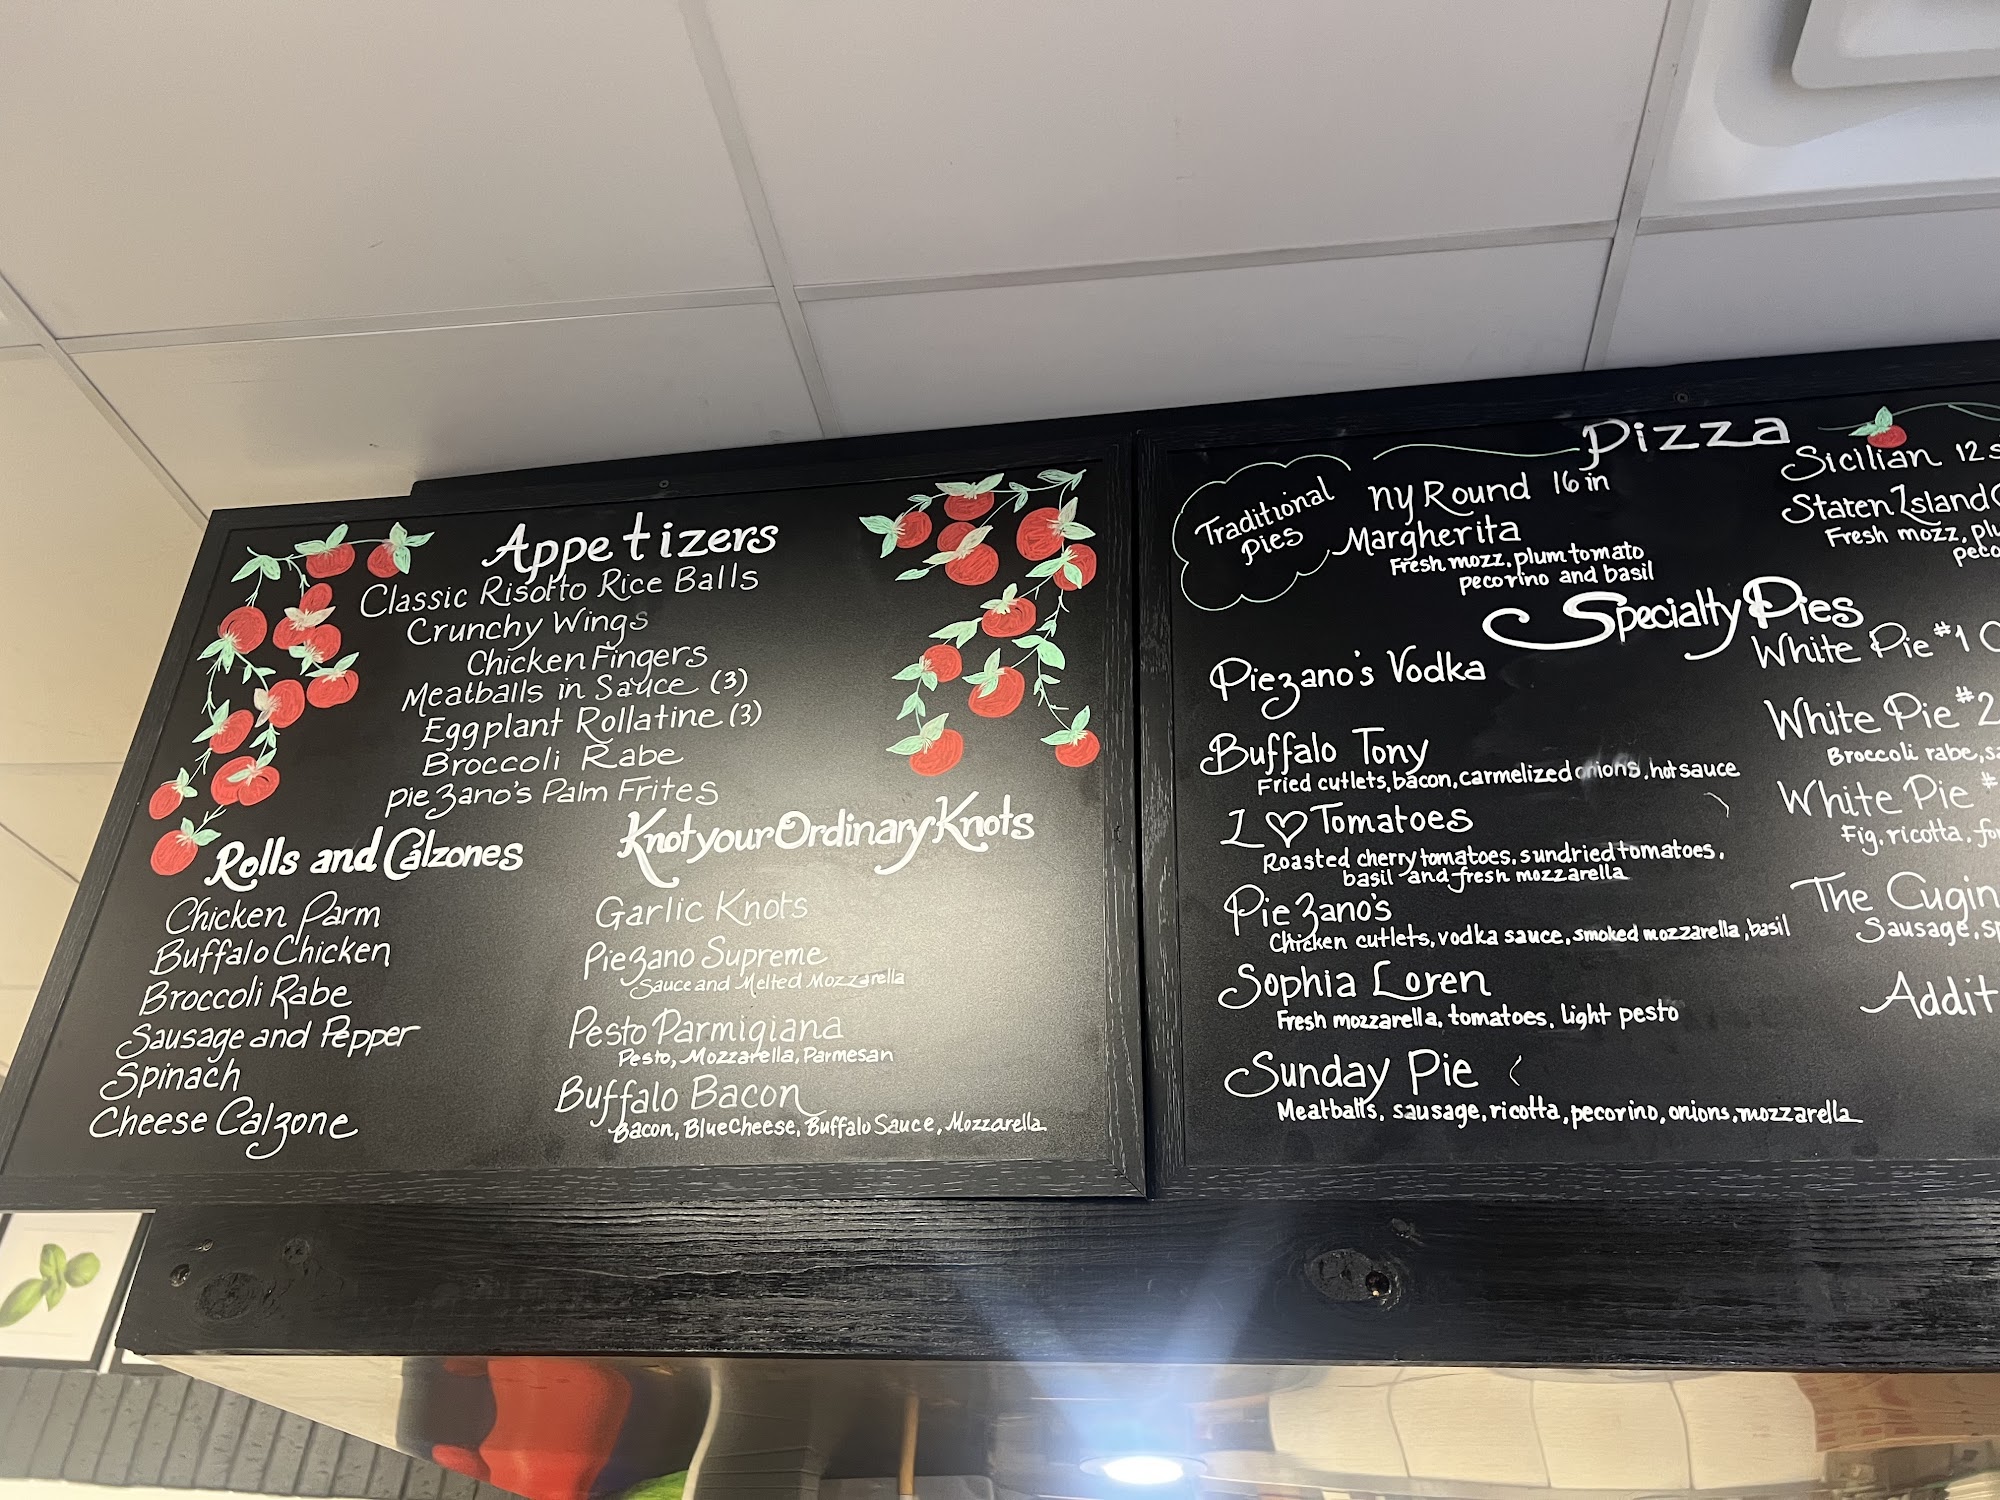 Appetizers
Classic Risotto Rice Balls
Crunchy Wings
Chicken Fingers
Meatballs in Sauce (3)
Eggplant Rollatine (3)
Broccoli Rabe
PieZano's Palm Frites
Rolls and Calzones
Chicken Parm
Buffalo Chicken
Broccoli Rabe
Sausage and Pepper
Spinach
Cheese Calzone
Knot your Ordinary Knots
Garlic Knots
PieZano Supreme
Sauce and Melted Mozzarella
Pesto Parmigiana
Pesto, Mozzarella, Parmesan
Buffalo Bacon
Bacon, Blue Cheese, Buffalo Sauce, Mozzarella
Pizza
Traditional
Pies
NY Round 16 in
Margherita
Fresh mozz, plum tomato
pecorino and basil
Sicilian 12
Staten Island
Fresh mozz,
Specialty Pies
Piezano's Vodka
Buffalo Tony
Fried cutlets, bacon, carmelized onions, hot sauce
I ♡ Tomatoes
Roasted cherry tomatoes, sundried tomatoes,
basil and fresh mozzarella
PieZano's
Chicken cutlets, vodka sauce, smoked mozzarella, basil
Sophia Loren
Fresh mozzarella, tomatoes, light pesto
Sunday Pie
Meatballs, sausage, ricotta, pecorino, onions, mozzarella
White Pie #1
White Pie #2
Broccoli rabe,
White Pie #
Fig, ricotta,
The
Sausage,